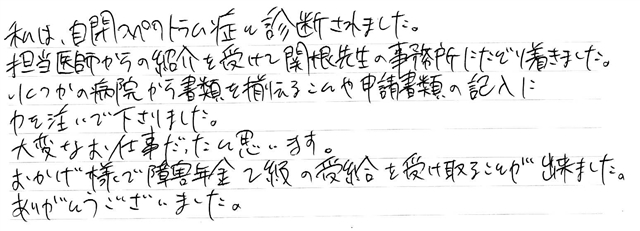 私は、自閉スペクトラム症と診断されました。
担当医師からの紹介を受けて関根先生の事務所にたどり着きました。
いくつかの病院から書類を揃えることや申請書類の記入に
力を注いで下さりました。
大変なお仕事だったと思います。
おかげ様で障害年金2級の受給を受け取ることが出来ました。
ありがとうございました。